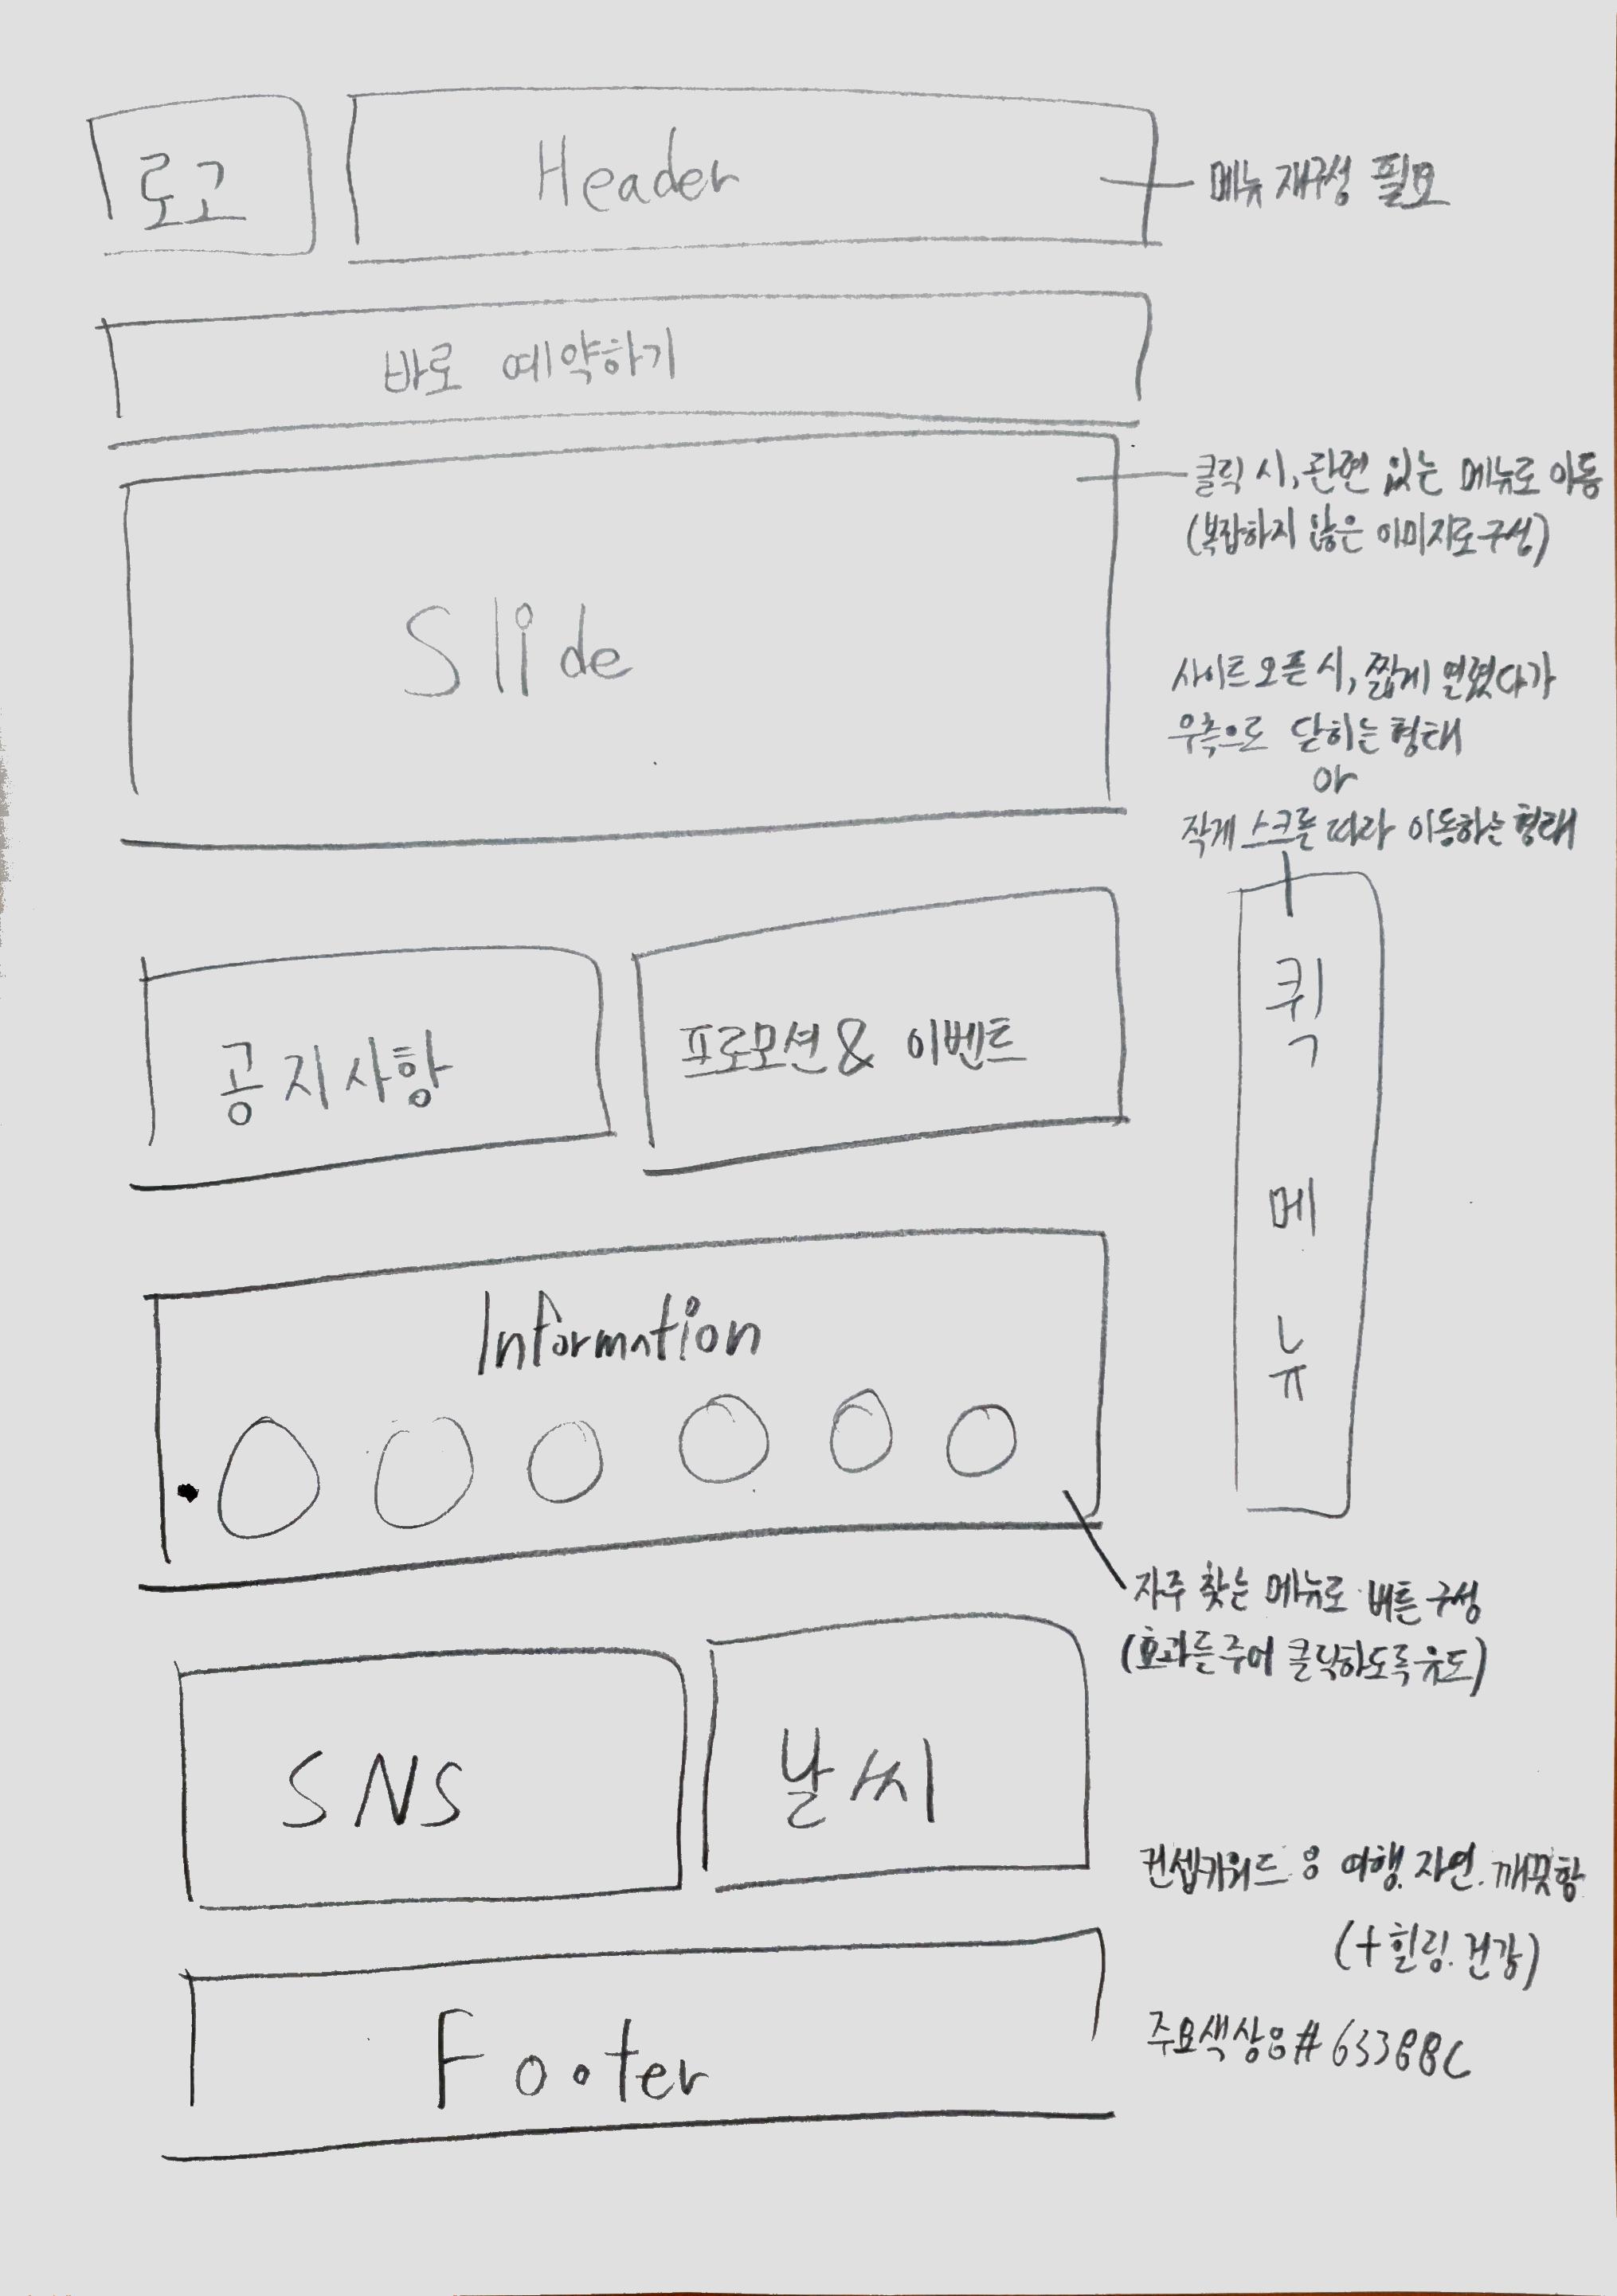 로고
Header
메뉴 재구성 필요
바로 예약하기
클릭 시, 관련 있는 메뉴로 이동
(복잡하지 않은 이미지로 구성)
Slide
사이트 오픈 시, 짧게 열렸다가
우측으로 닫히는 형태
or
작게 스크롤 따라 이동하는 형태
공지사항
프로모션 & 이벤트
퀵 메뉴
Information
자주 찾는 메뉴로 버튼 구성
(효과를 주어 클릭하도록 유도)
SNS
날씨
컨셉키워드 : 여행. 자연. 깨끗함
(+ 힐링. 건강)
Footer
주요색상 : #633BBC